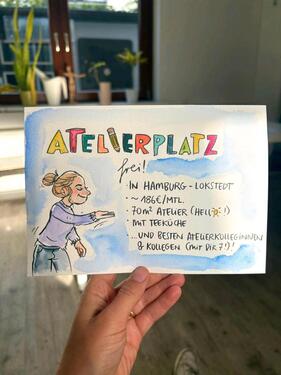 ATELIERPLATZ
frei!
·IN HAMBURG - LOKSTEDT
· ~ 186€/MTL.
· 70m² ATELIER (HELL !)
· MIT TEEKÜCHE
· ...UND BESTEN ATELIERKOLLEGINNEN
& KOLLEGEN (MIT DIR 7!)!